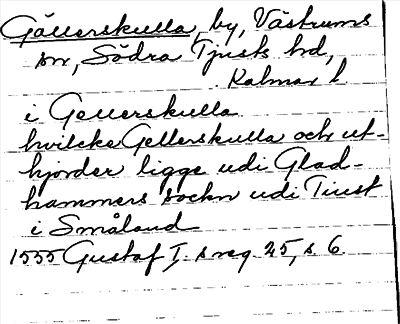 Gällerskulla by, Västrums
sn, Södra Tjusts hd,
Kalmar l.
i Gellerskulla
hvilcke Gellerskulla och ut-
hjorder ligge udi Glad-
hammers sockn udi Tiust
i Småland
1555 Gustaf I. s reg 25, s. 6.